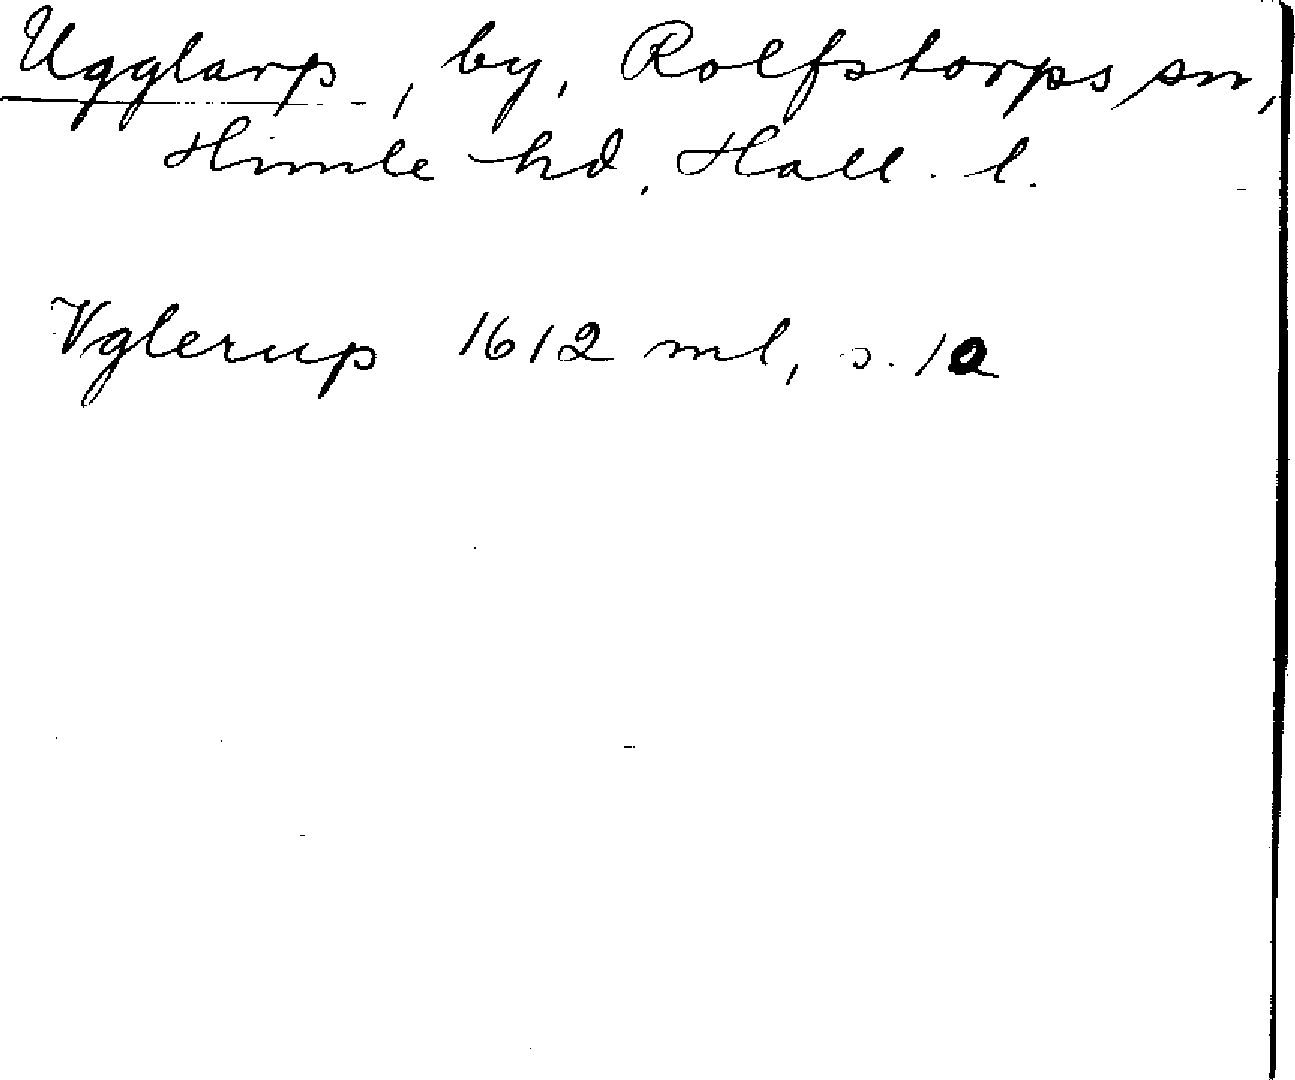 Ugglarp, by, Rolfstorps sn,
Himle hd, Hall. l.
Vglerup 1612 ml, s. 12